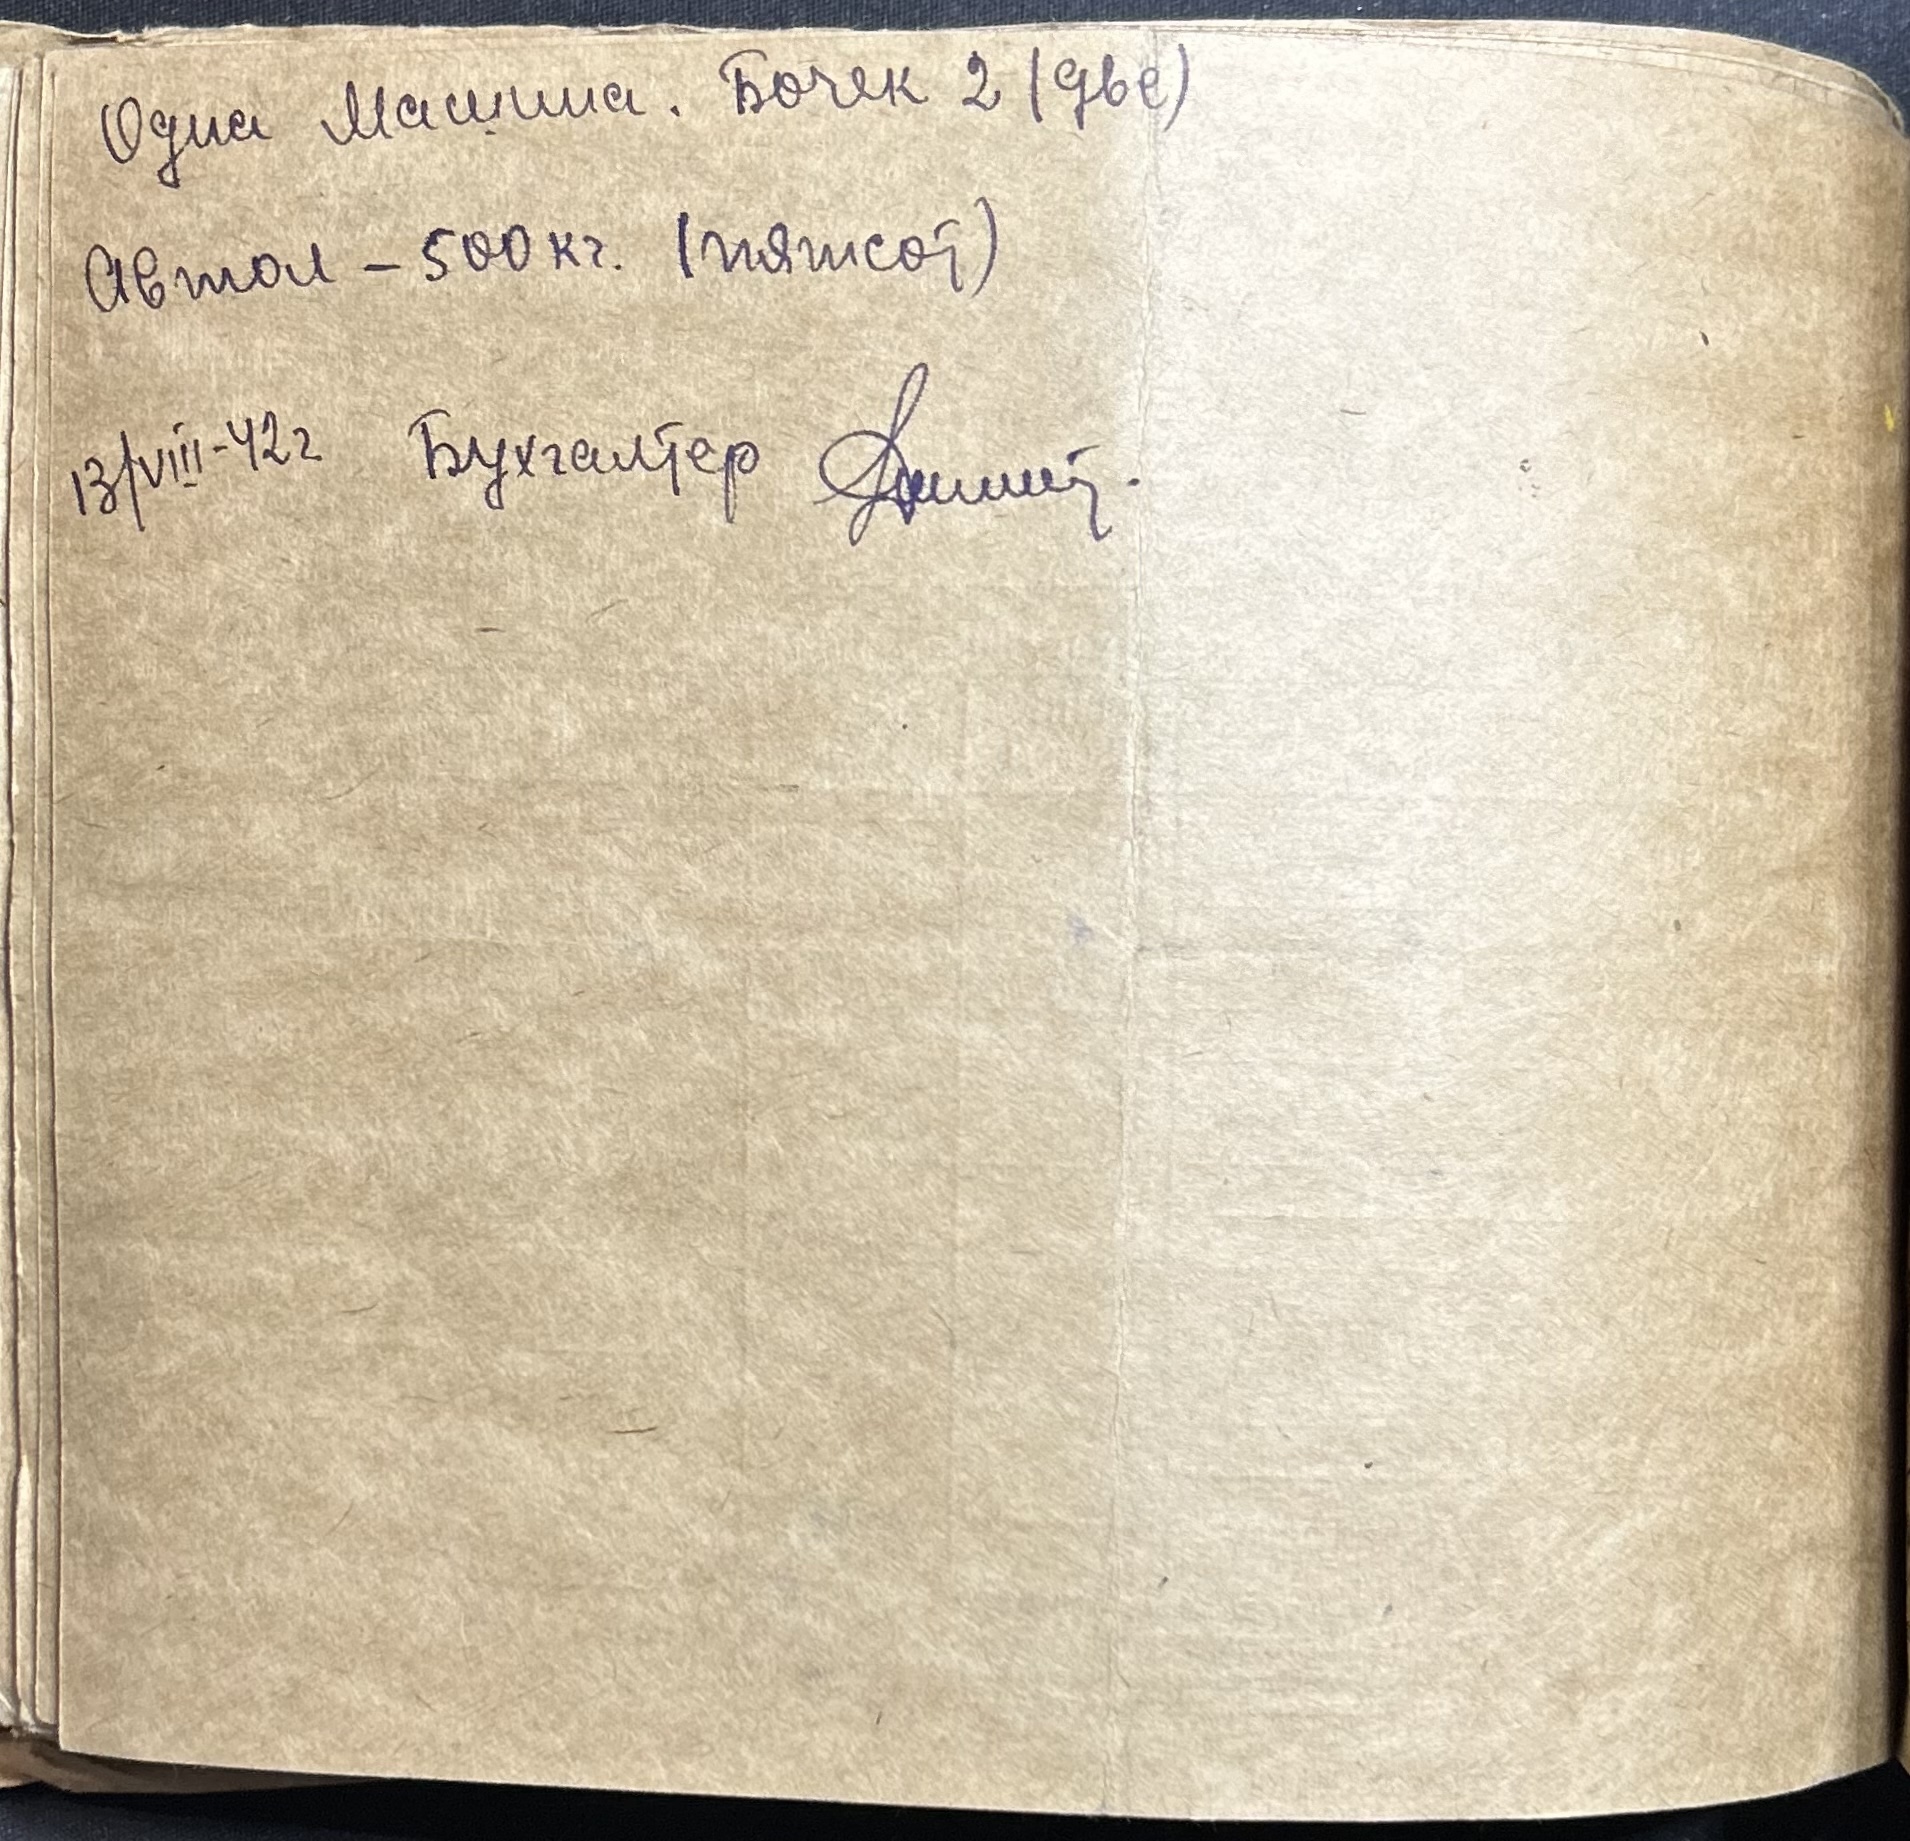 Одна Машина. Бочек 2 (две)
Автол – 500 кг. (пятсот)
13/VIII-42 г Бухгалтер